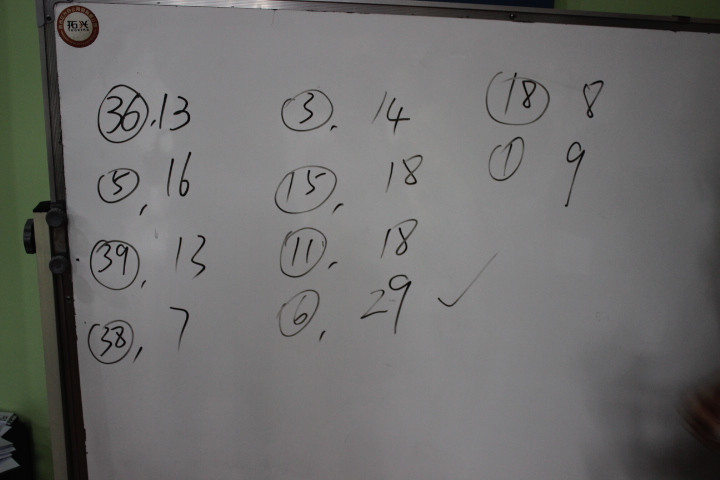 拓兴
36, 13
5, 16
39, 13
38, 7
3, 14
15, 18
11, 18
6, 29 ✓
18 8
1 9